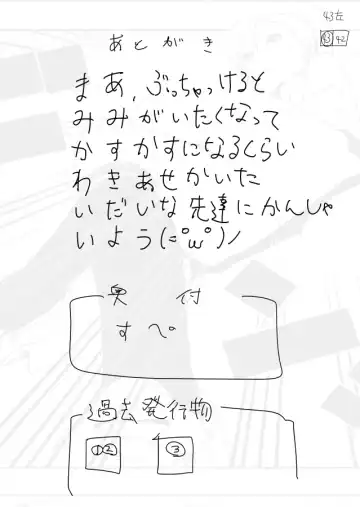 43左
43 42
あとがき
まあ、ぶっちゃっけると
みみがいたくなって
かすかすになるくらい
わきあせかいた
いだいな先達にかんしゃ
いよう(=゚ω゚)ノ
奥付
すぺ
過去発行物
①②
③